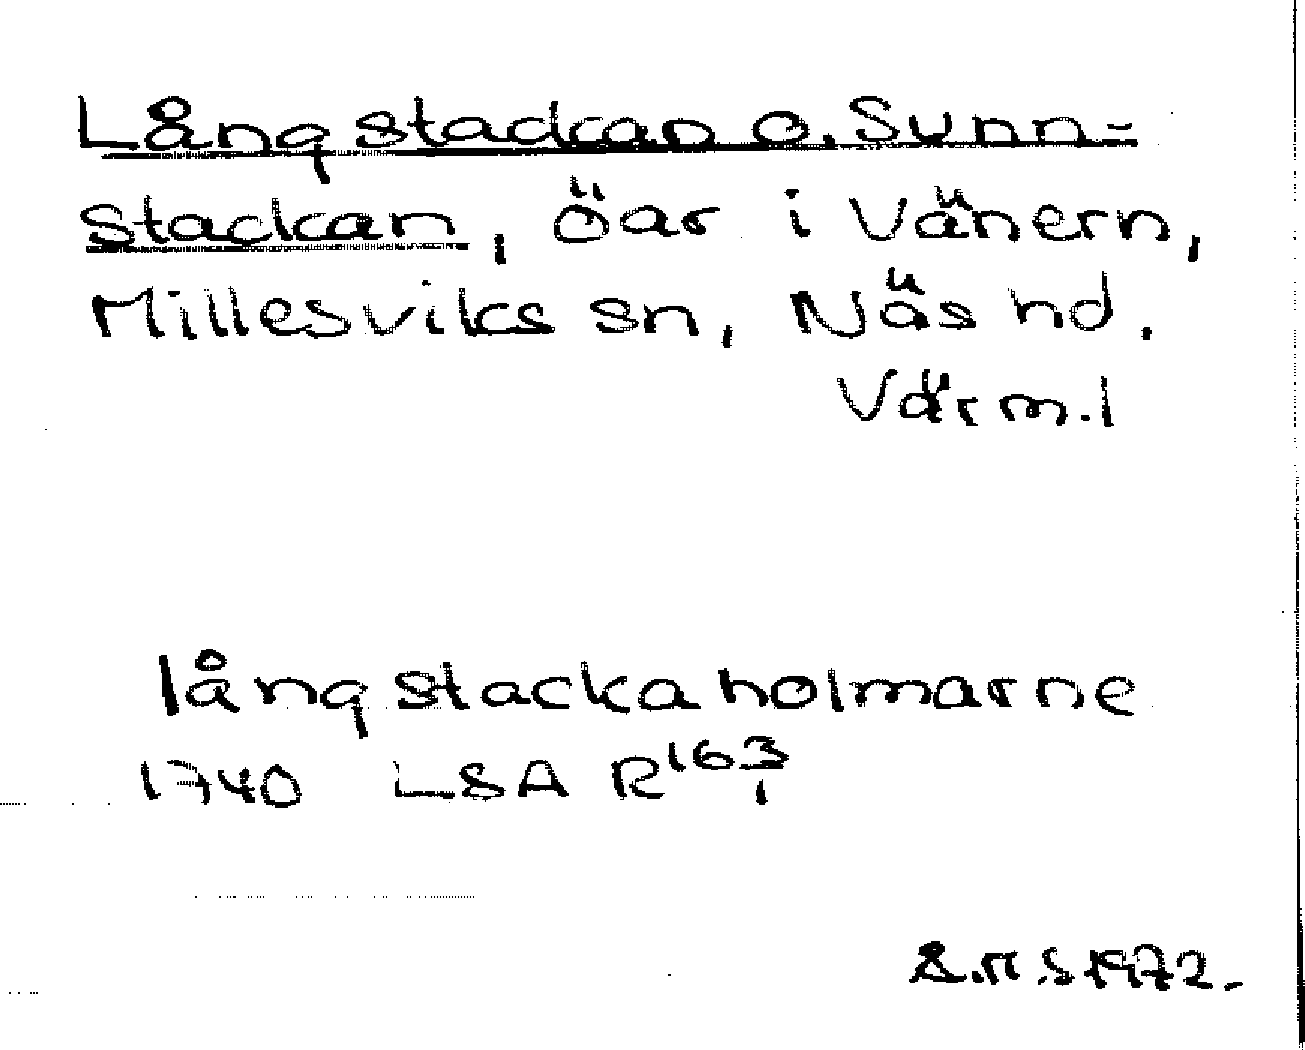 Långstackan o. Sunn-
stackan, öar i Vänern,
Millesviks sn, Näs hd.
Värml
långstacka holmarne
1740 LSA R 163/1
1972.